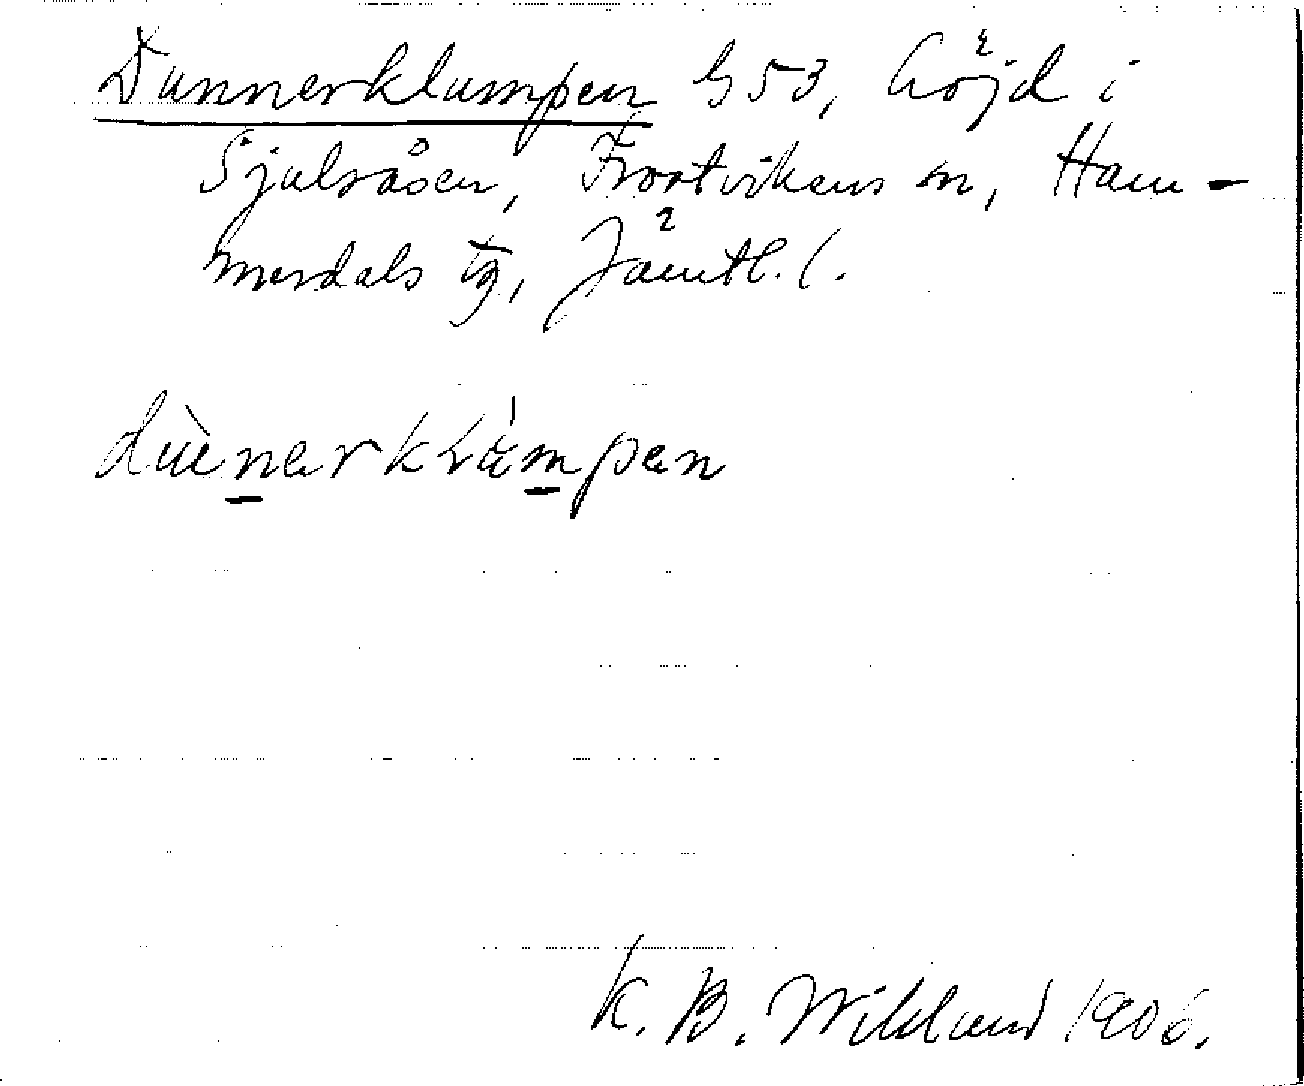 Dunnerklumpen G53, höjd i
Sjulsåsen, Frostvikens sn, Ham-
merdals tg, Jämtl. l.
K. B. Wiklund 1906.